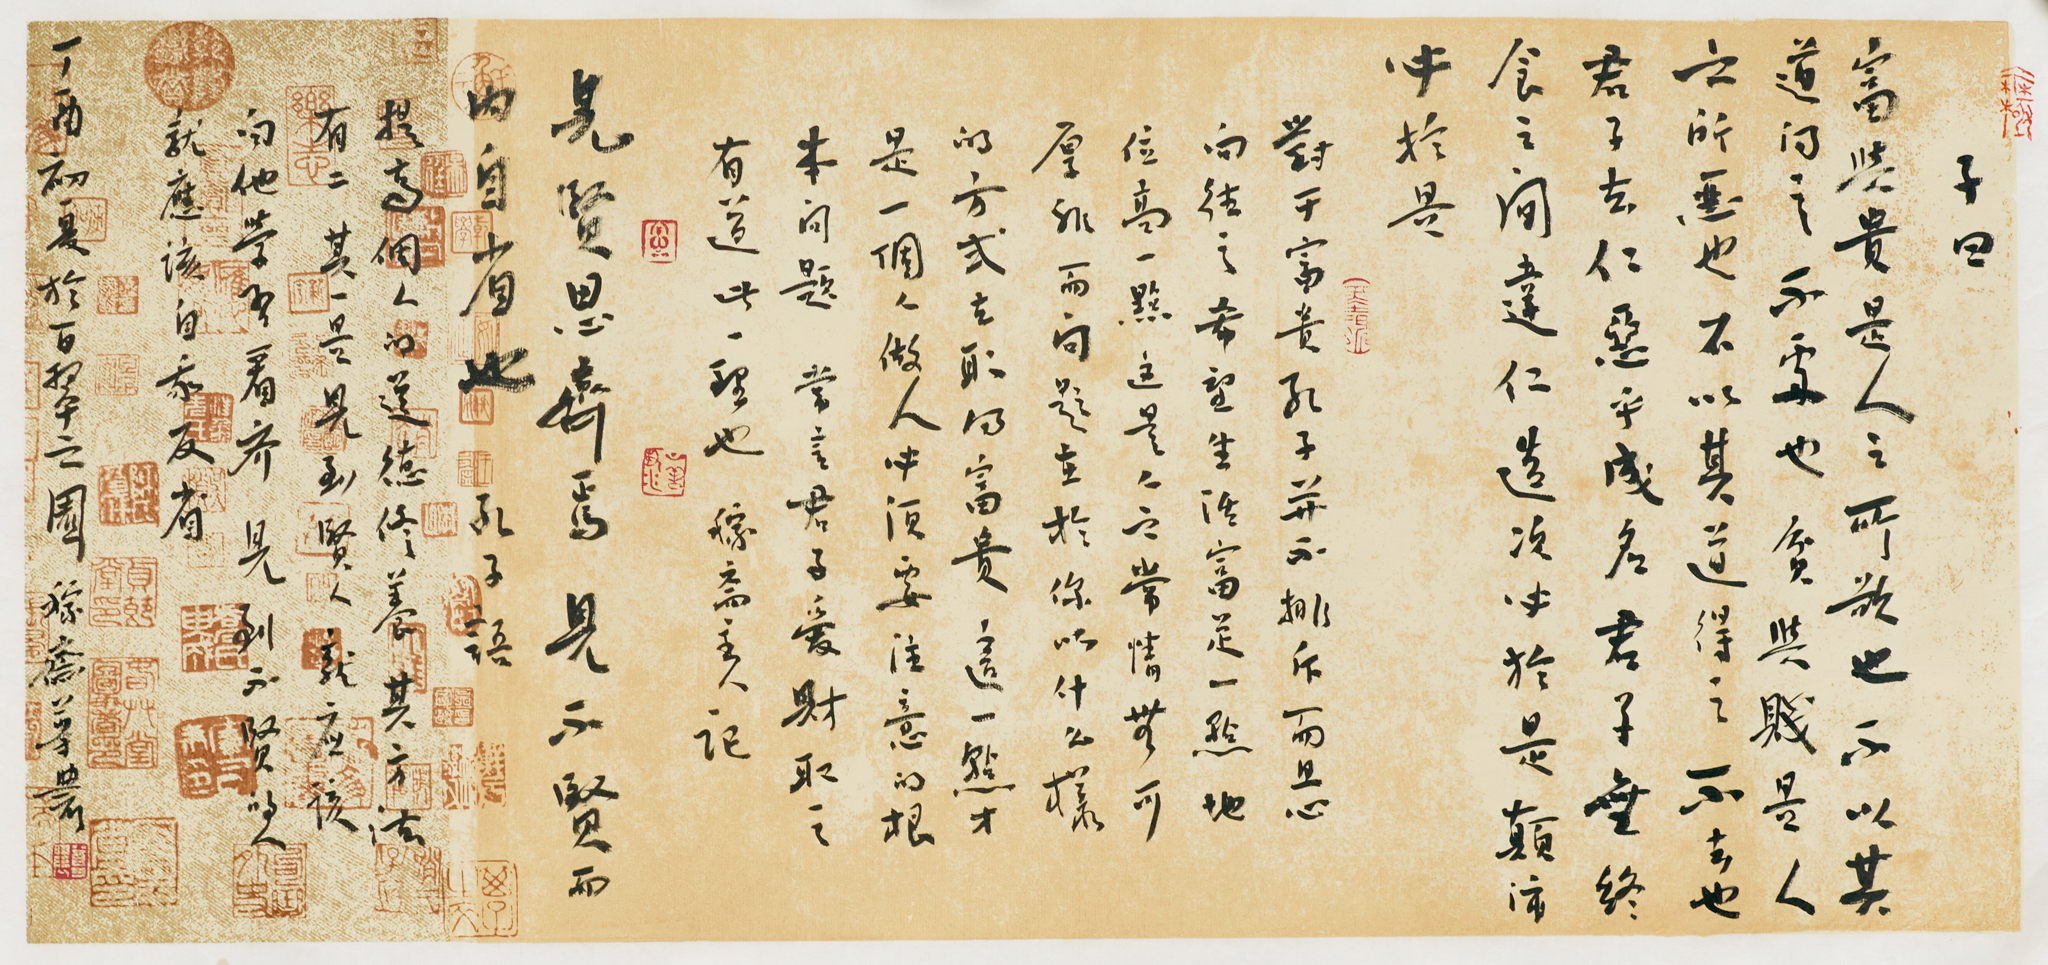 子曰
富與貴是人之所欲也不以其
道得之不處也貧與賤是人
之所惡也不以其道得之不去也
君子去仁惡乎成名君子無終
食之间違仁造次必於是顛沛
必於是
對于富贵孔子并不排斥而且心
向往之希望生活富足一點地
位高一點这是人之常情無可
厚非而问题在於你以什么樣
的方式去取得富贵這一點才
是一個人做人必須要注意的根
本问题 常言君子爱财取之
有道此一理也 稼斋主人记
見賢思齊焉 見不賢而
内自省也 孔子語
提高個人的道德修養其方法
有二其一是見到賢人就应该
向他学习看齐 見到不賢的人
就應该自我反省
丁酉初夏於百翠之園 稼齋莘農